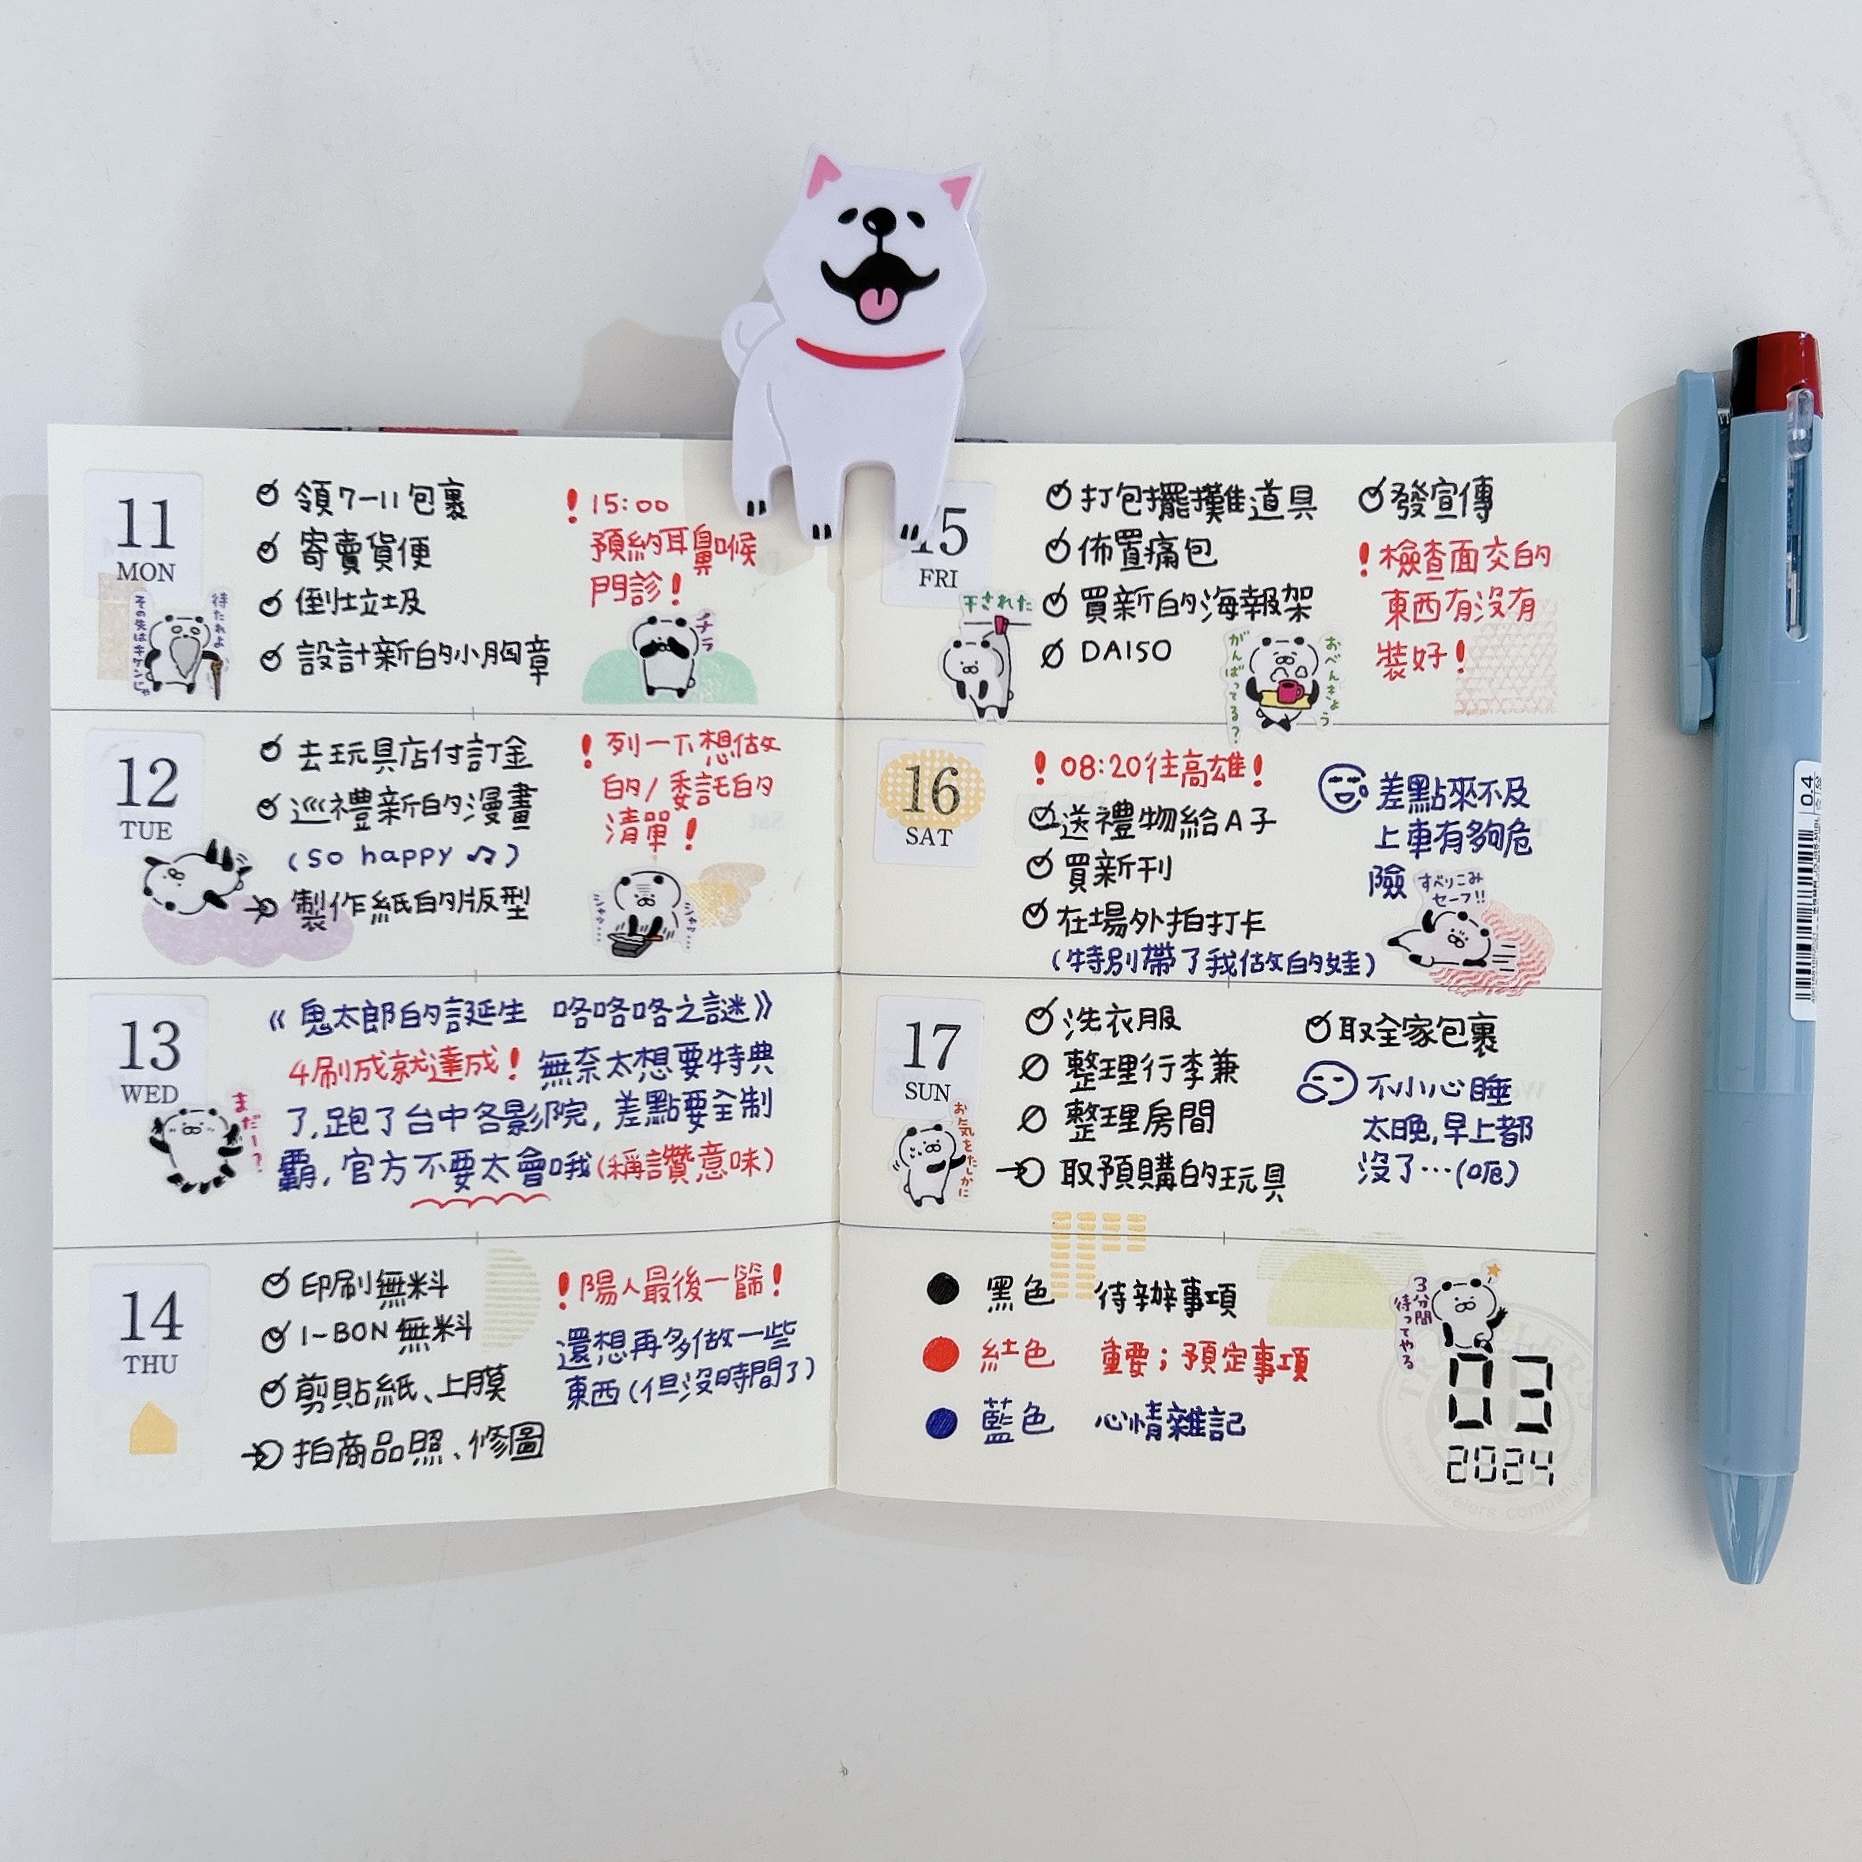 11
MON
領7-11包裹
寄賣貨便
倒垃圾
設計新的小胸章
！15:00
預約耳鼻喉
門診！
待たれよ
その先はキケンじゃ
チラ
12
TUE
去玩具店付訂金
巡禮新的漫畫
(so happy ♫)
製作紙的版型
！列一下想做
的/委託的
清單！
13
WED
《鬼太郎的誕生 咯咯咯之謎》
4刷成就達成！無奈太想要特典
了,跑了台中各影院,差點要全制
霸,官方不要太會哦(稱讚意味)
まだー？
14
THU
印刷無料
I-BON無料
剪貼紙、上膜
拍商品照、修圖
！陽人最後一篩！
還想再多做一些
東西(但沒時間了)
15
FRI
打包擺攤道具
佈置痛包
買新的海報架
DAISO
發宣傳
！檢查面交的
東西有沒有
裝好！
干された
おべんきょう
がんばってる？
16
SAT
！08:20往高雄！
送禮物給A子
買新刊
在場外拍打卡
(特別帶了我做的娃)
差點來不及
上車有夠危
險
すべりこみ
セーフ!!
17
SUN
洗衣服
整理行李兼
整理房間
取預購的玩具
取全家包裹
不小心睡
太晚,早上都
沒了…(呃)
お気をたしかに
黑色 待辦事項
紅色 重要;預定事項
藍色 心情雜記
3分間
待ってやる
03
2024
0.4